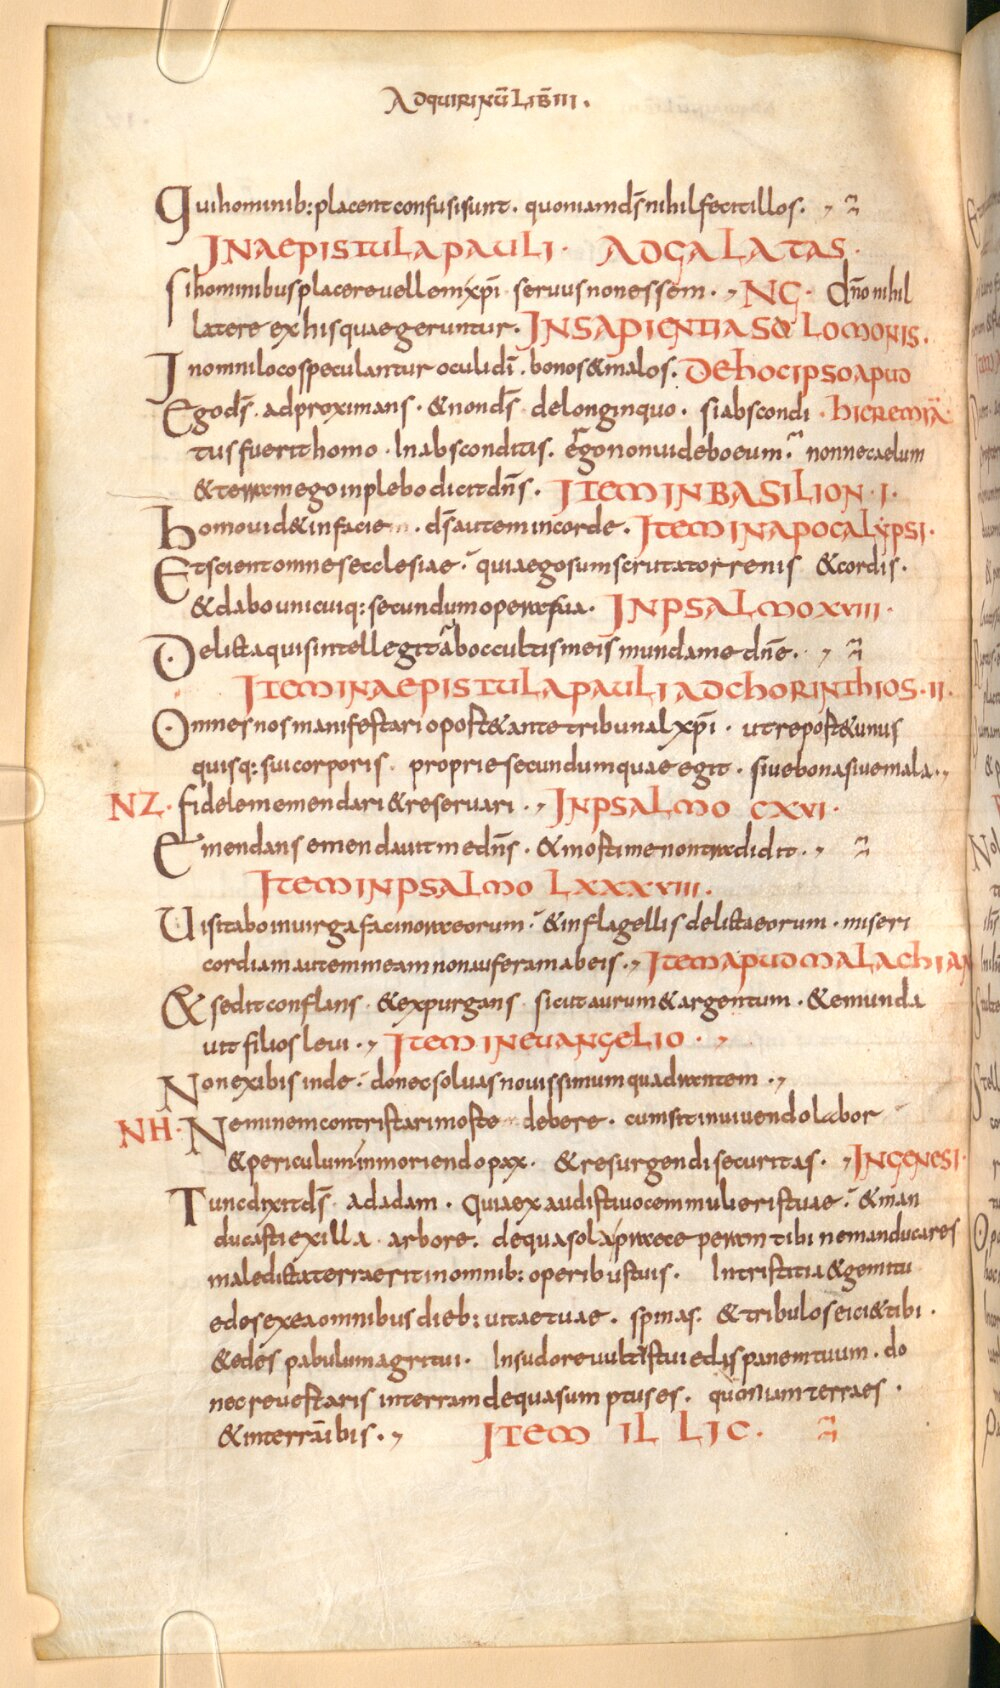 Adquirinū Lib̄ III.
Quihominib: placent confusi sunt. quoniam ds̄ nihil fecit illos.
IN AEPISTULA PAULI. AD GALATAS.
Si hominibus placere vellem xp̄i servus non essem. NG. dn̄o nihil
latere ex his quae geruntur. IN SAPIENTIA SOLOMONIS.
In omni loco speculantur oculi dī. bonos & malos. DE HOC IPSO APUD
Ego ds̄. adproximans. & non ds̄ de longinquo. si abscondi. HIEREMIĀ
tus fuerit homo. In absconditis. ergo non videbo eum. nonne caelum
& terram ego inplebodicit dn̄s. ITEM IN BASILION. I.
Homo vid& in facie. ds̄ autem in corde. ITEM IN APOCALYPSI.
Et scient omnes ecclesiae. quia ego sum scrutator renis & cordis.
& dabo unicuiq: secundum opera sua. IN PSALMO XVIII.
Delicta quis intellegit ab occultis meis munda me dn̄e.
ITEM IN AEPISTULA PAULI AD CHORINTHIOS. II.
Omnes nos manifestari oport& ante tribunal xp̄i. ut report& unus
quisq: sui corporis. proprie secundum quae egit. sive bona sive mala.
NZ. fidelem emendari & reservari. IN PSALMO CXVI.
Emendans emendavit me dn̄s. & morti me non tradidit.
ITEM IN PSALMO LXXXVIII.
Visitabo in virga facinora eorum. & in flagellis delicta eorum. miseri
cordiam autem meam non auferam ab eis. ITEM APUD MALACHIAM
& sedit conflans & expurgans sicut aurum & argentum. & emunda
vit filios levi. ITEM IN EVANGELIO.
Non exibis inde. donec solvas novissimum quadrantem.
NH. Neminem contristari morte debere. cum sit in vivendo labor
& periculum in moriendo pax. & resurgendi securitas. IN GENESI.
Tunc dixit ds̄ ad adam. Quia exaudisti vocem mulieris tuae. & man
ducasti ex illa arbore. de qua sola praeceperam tibi ne manducares
maledicta terra erit in omnib: operibus tuis. In tristitia & gemitu
edes ex ea omnibus dieb: vitae tuae. spinas. & tribulos eici& tibi.
& edes pabulum agri tui. In sudore vultus tui edis panem tuum. do
nec revertaris in terram de qua sumptus es. quoniam terra es.
& in terrā ibis. ITEM ILLIC.